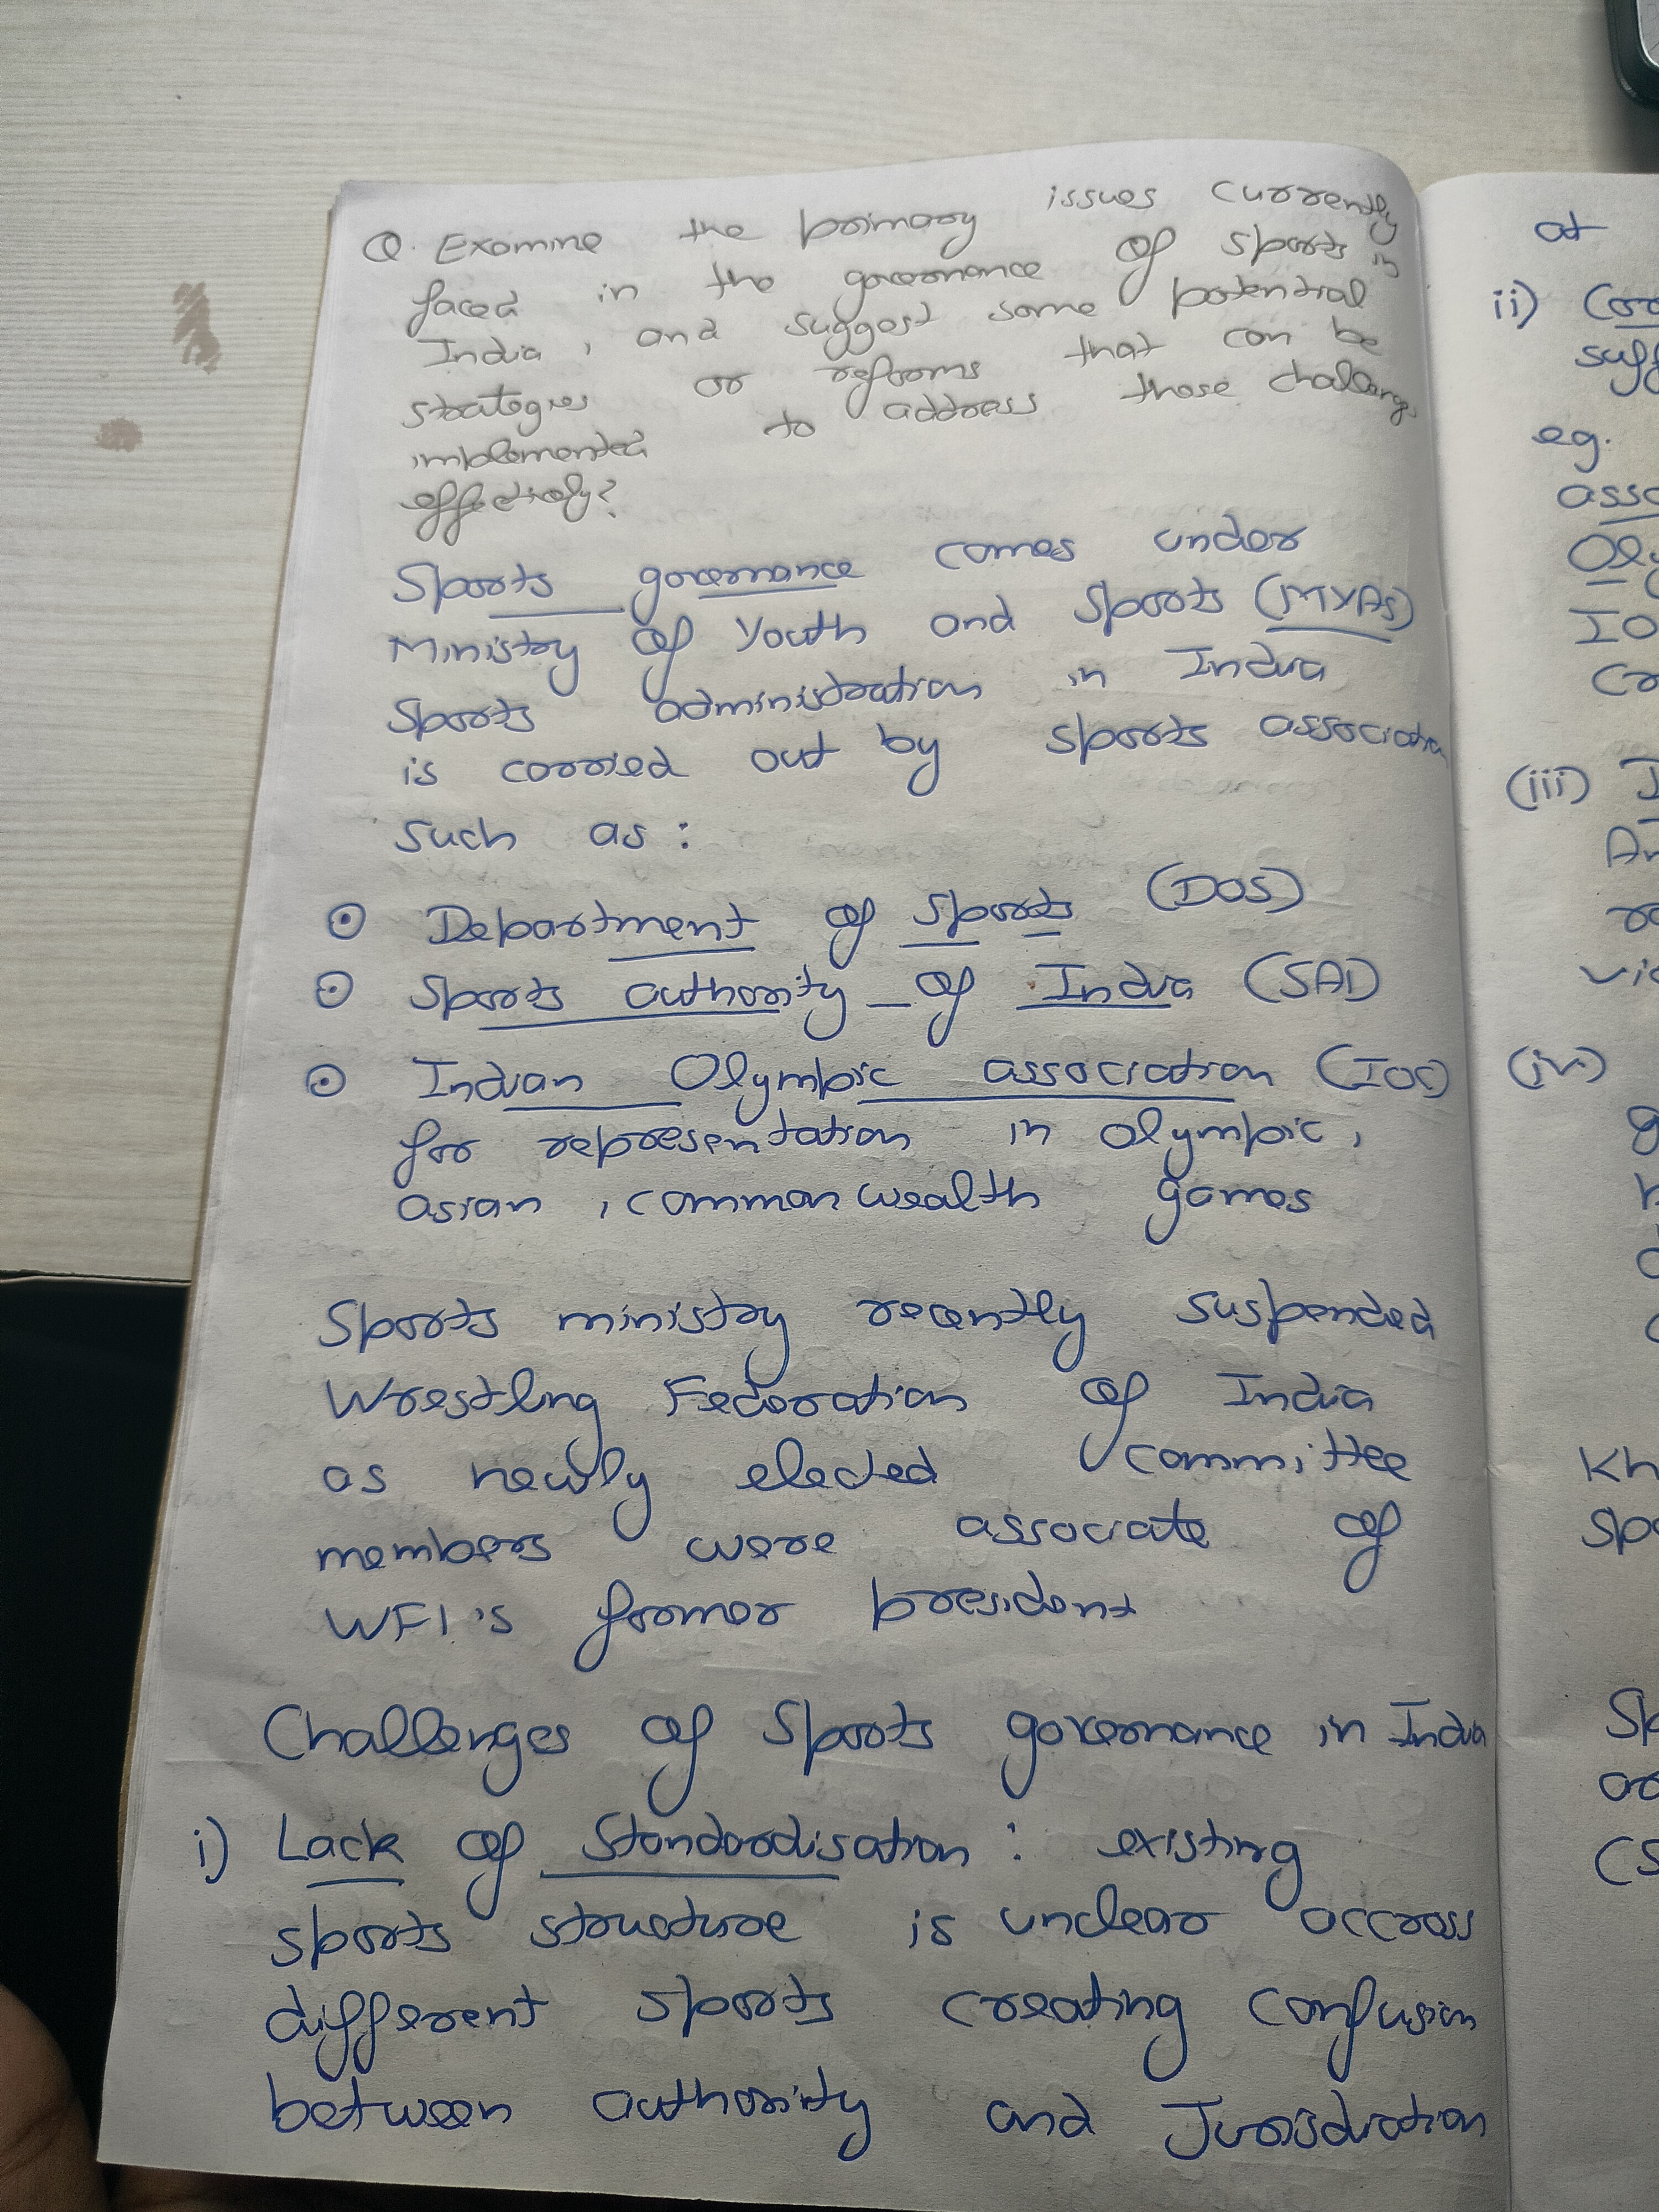 Q. Examine the primary issues currently
faced in the governance of sports in
India, and suggest some potential
strategies or reforms that can be
implemented to address these challenges
effectively?
Sports governance comes under
Ministry of Youth and Sports (MYAS)
Sports administration in India
is carried out by sports association
such as:
Department of Sports (DOS)
Sports authority of India (SAI)
Indian Olympic association (IOC)
for representation in olympic,
asian, commonwealth games
Sports ministry recently suspended
Wrestling Federation of India
as newly elected committee
members were associate of
WFI's former president
Challenges of Sports governance in India
i) Lack of Standardisation: existing
sports structure is unclear accross
different sports creating confusion
between authority and
at
ii)
eg.
(iii)
(iv)